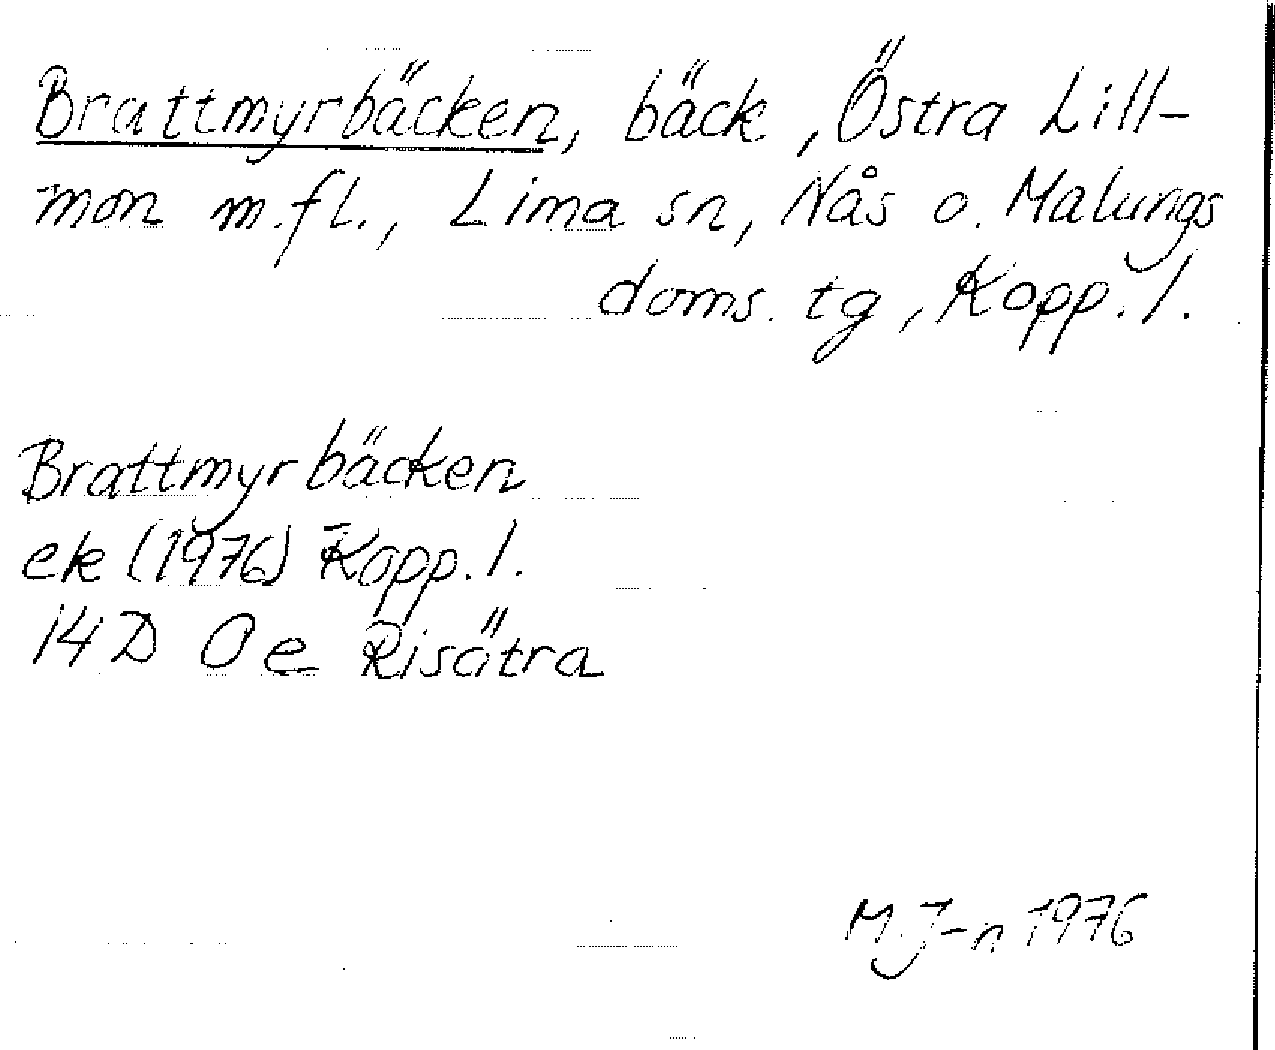 Brattmyrbäcken, bäck, Östra Lill-
mon m.fl., Lima sn, Nås o. Malungs
doms. tg, Kopp. l.
Brattmyrbäcken
ek (1976) Kopp. l.
14D 0e Risätra
M. J-n 1976